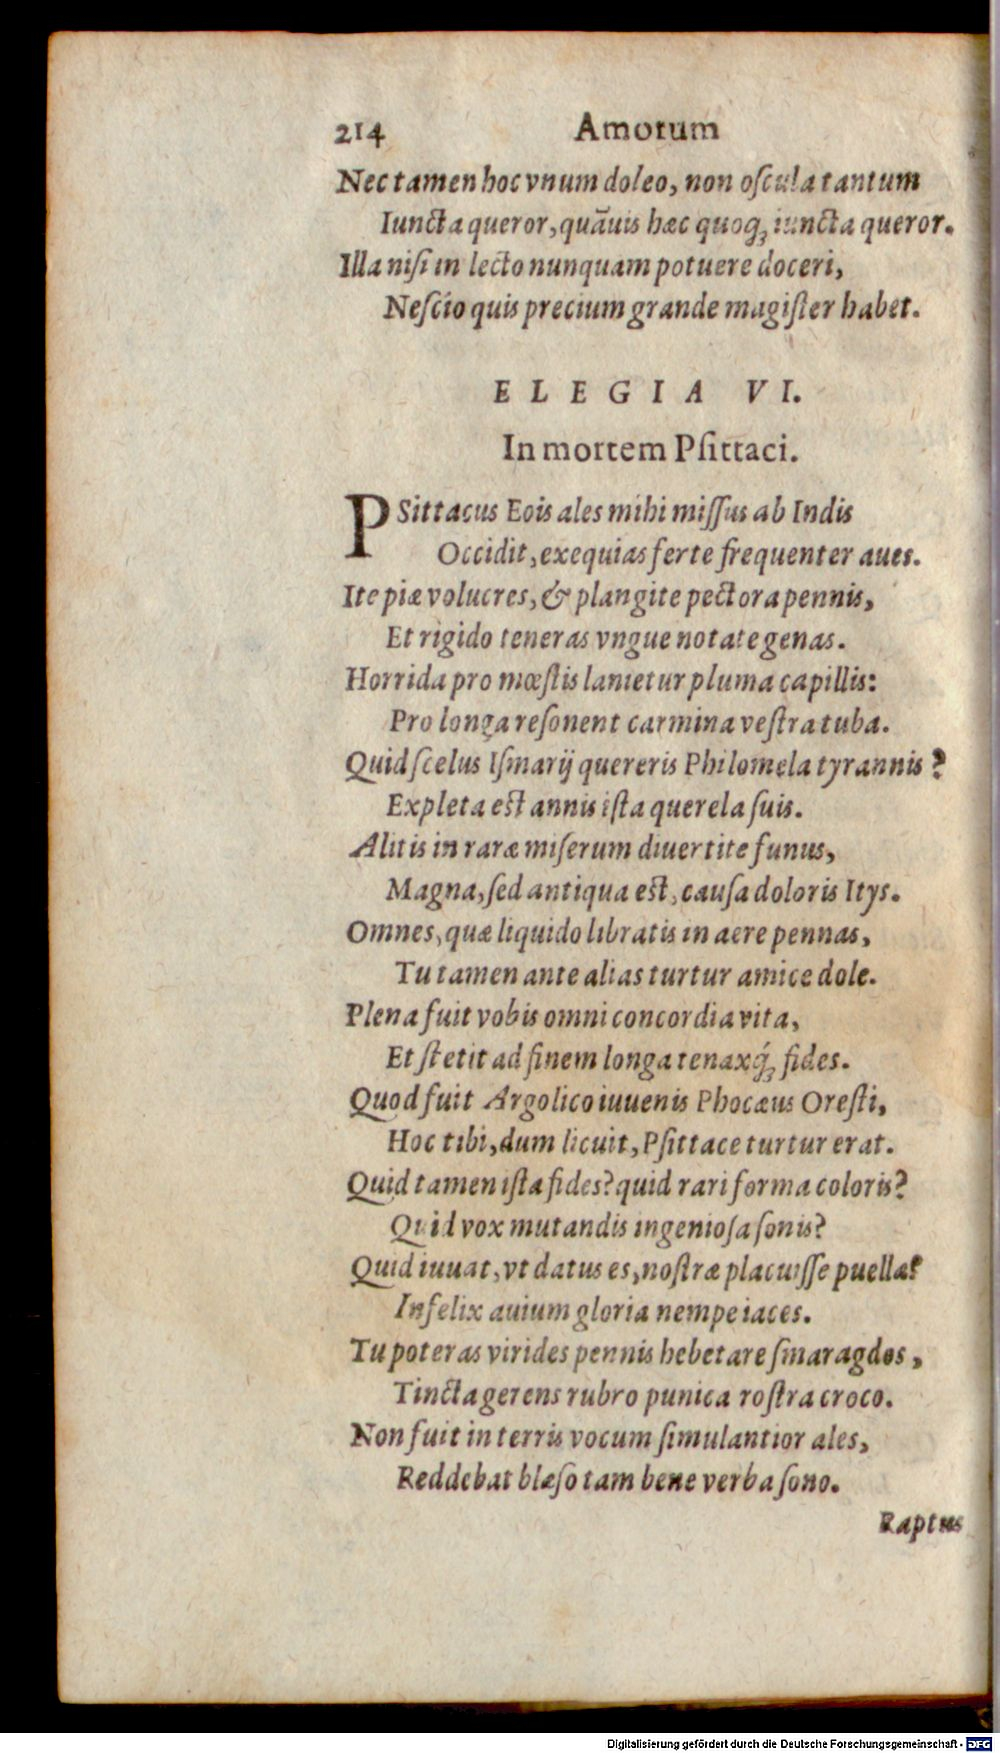 214 Amorum
Nec tamen hoc vnum doleo, non oſcula tantum
Iuncta queror, quāuis hæc quoqꝫ iuncta queror.
Illa niſi in lecto nunquam potuere doceri,
Neſcio quis precium grande magiſter habet.
ELEGIA VI.
In mortem Pſittaci.
PSittacus Eois ales mihi miſſus ab Indis
Occidit, exequias ferte frequenter aues.
Ite piæ volucres, & plangite pectora pennis,
Et rigido teneras vngue notate genas.
Horrida pro mœſtis lanietur pluma capillis:
Pro longa reſonent carmina veſtra tuba.
Quid ſcelus Iſmarij quereris Philomela tyrannis?
Expleta eſt annis iſta querela ſuis.
Alitis in raræ miſerum diuertite funus,
Magna, ſed antiqua eſt, cauſa doloris Itys.
Omnes, quæ liquido libratis in aere pennas,
Tu tamen ante alias turtur amice dole.
Plena fuit vobis omni concordia vita,
Et ſtetit ad finem longa tenaxqꝫ́ fides.
Quod fuit Argolico iuuenis Phocæus Oreſti,
Hoc tibi, dum licuit, Pſittace turtur erat.
Quid tamen iſta fides? quid rari forma coloris?
Quid vox mutandis ingenioſa ſonis?
Quid iuuat, vt datus es, noſtræ placuiſſe puellæ?
Infelix auium gloria nempe iaces.
Tu poteras virides pennis hebetare ſmaragdos,
Tincta gerens rubro punica roſtra croco.
Non fuit in terris vocum ſimulantior ales,
Reddebat blæſo tam bene verba ſono.
Raptus
Digitalisierung gefördert durch die Deutsche Forschungsgemeinschaft - DFG